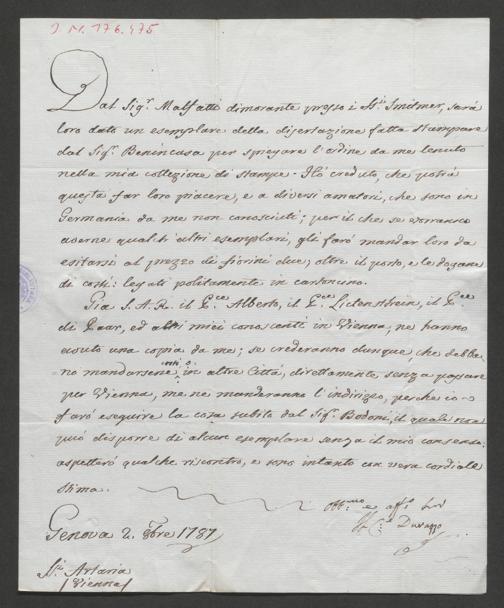 J.N. 176.475
Dal Sig.r Malfatti dimorante presso i SS.ri Smitmer, sarà
loro dato un esemplare della disertazione fatta stampare
dal Sig.r Benincasa per spiegare l'ordine da me tenuto
nella mia collezione di stampe. Hò creduto, che potrà
questa far loro piacere, e a diversi amatori, che sono in
Germania da me non conosciuti; per il che se vorranno
averne qualch'altri esemplari, gli farò mandar loro da
esitarsi al prezzo di fiorini due; oltre il porto, e le dogane
di costì: legati politamente in cartoncino.
Già S. A. R. il P.ce Alberto, il P.ce Lictenshtein, il P.ce
di Paar, ed altri miei conoscenti in Vienna, ne hanno
avuto una copia da me; se crederanno dunque, che debba-
no mandarsene in altre Città, direttamente senza passare
per Vienna, me ne manderanno l'indirizzo, perche io
farò eseguire la cosa subito dal Sig.r Bodoni, il quale non
può disporre di alcun esemplare senza il mio consenso.
aspetterò qualche riscontro, e sono intanto con vera cordiale
stima.
Genova 2. 8bre 1787
Durazzo
SS.ri Artaria
Vienna